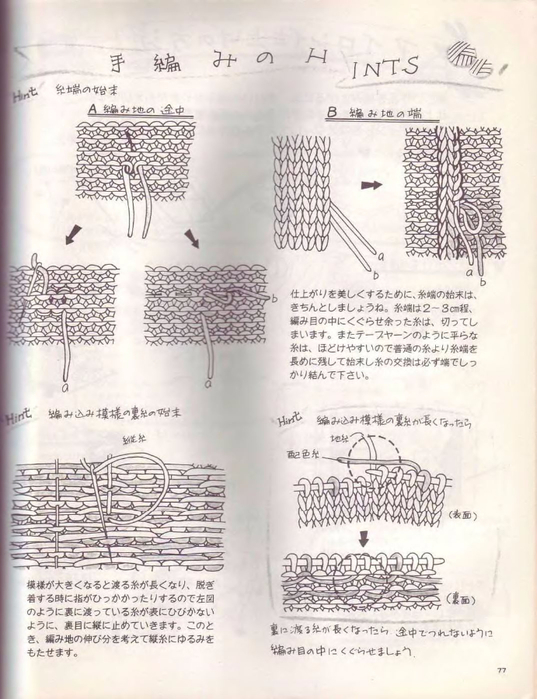 手編みのHINTS
Hint 糸端の始末
A 編み地の途中
B 編み地の端
a
b
a
b
b
a
a
仕上がりを美しくするために、糸端の始末は、
きちんとしましょうね。糸端は2〜3cm程、
編み目の中にくぐらせ余った糸は、切ってし
まいます。またテープヤーンのように平らな
糸は、ほどけやすいので普通の糸より糸端を
長めに残して始末し糸の交換は必ず端でしっ
かり結んで下さい。
Hint 編み込み模様の裏糸の始末
縦糸
模様が大きくなると渡る糸が長くなり、脱ぎ
着する時に指がひっかかったりするので左図
のように裏に渡っている糸が表にひびかない
ように、裏目に縦に止めていきます。このと
き、編み地の伸び分を考えて縦糸にゆるみを
もたせます。
Hint 編み込み模様の裏糸が長くなったら
地糸
配色糸
(表面)
(裏面)
裏に渡る糸が長くなったら、途中でつれないように
編み目の中にくぐらせましょう。
77